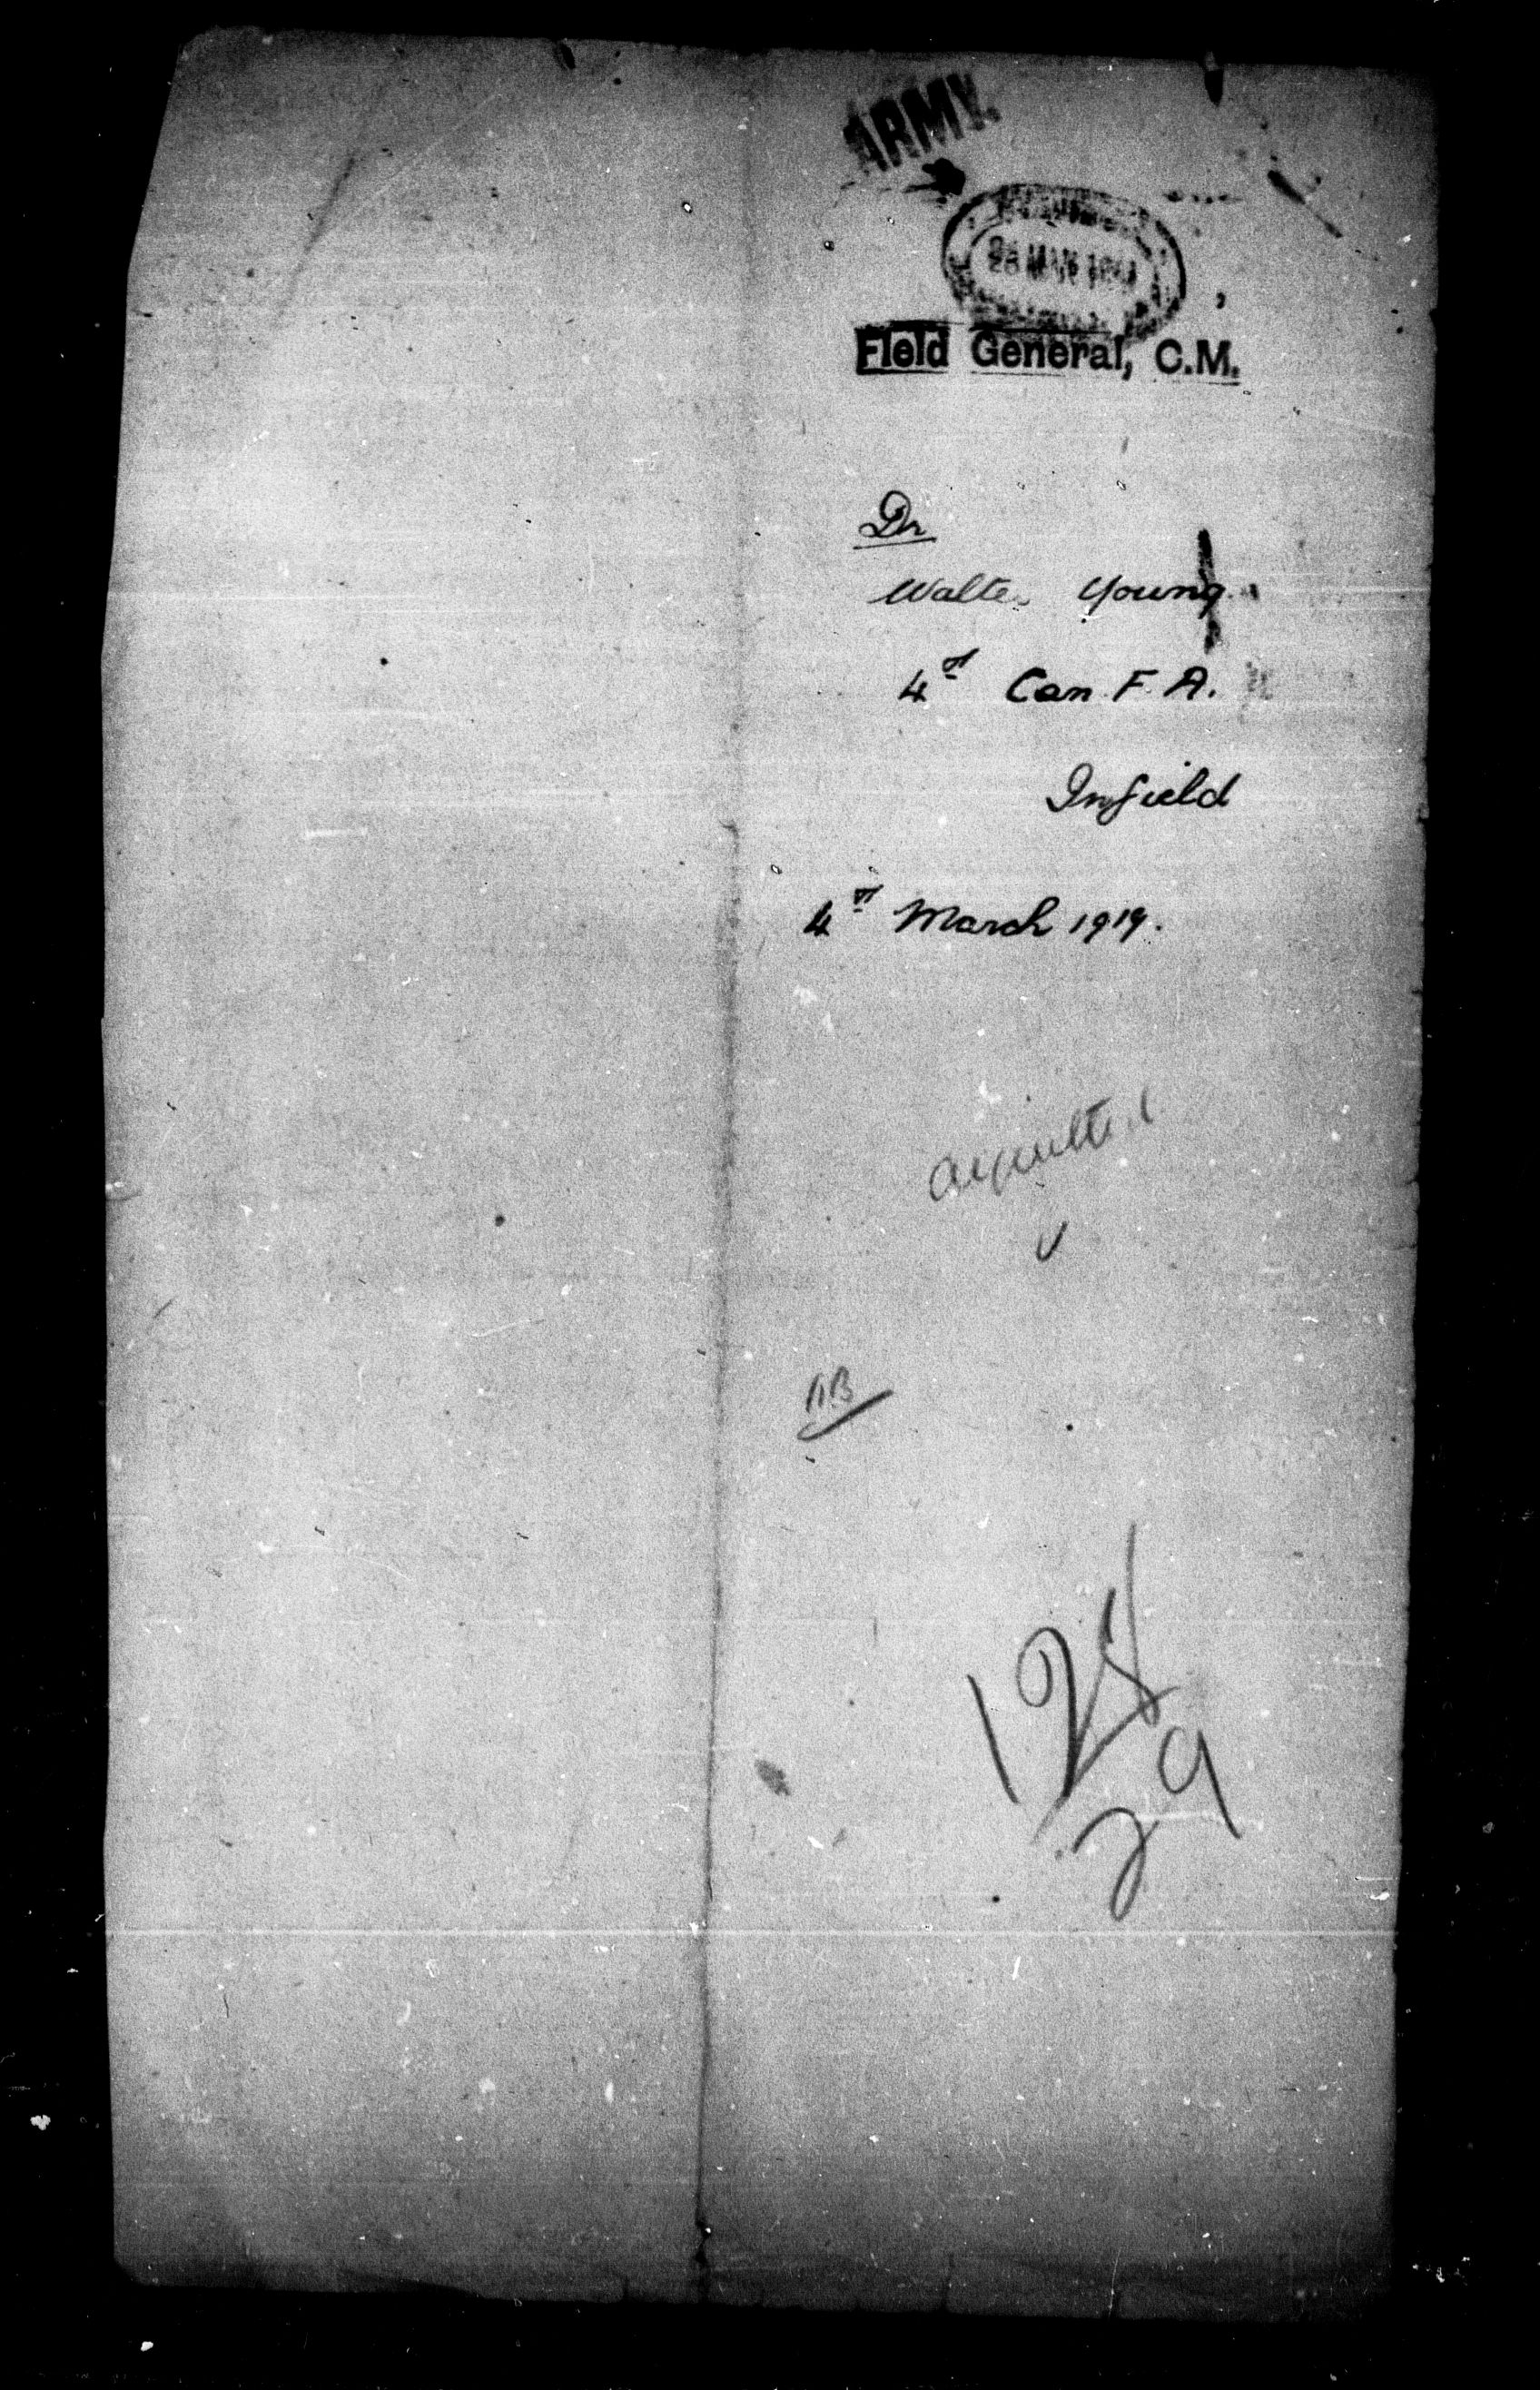 ARMY.
Field General, C.M.
Dr
Walter Young
4th Can F. A.
Infield
4th March 1919.
Acquitted
128
29